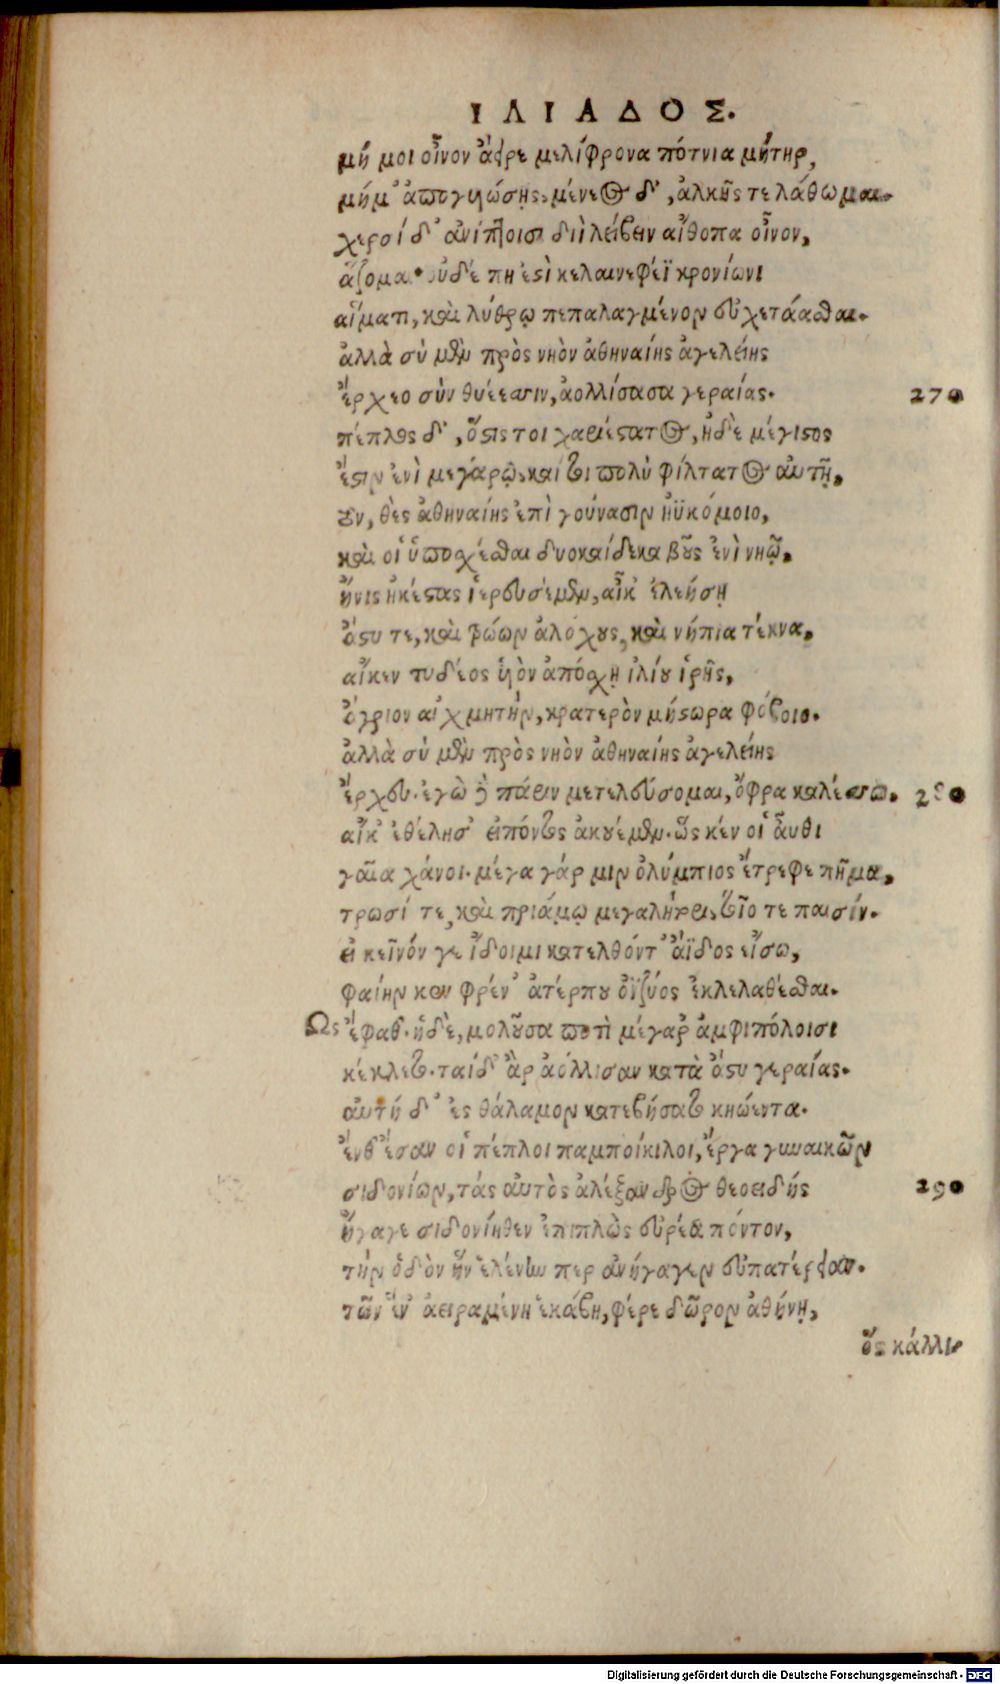 ΙΛΙΑΔΟΣ.
μή μοι οἶνον ἄειρε μελίφρονα πότνια μῆτηρ,
μήμ᾽ ἀπογυιώσῃς. μένεος δ᾽, ἀλκῆς τε λάθωμαι.
χερσί δ᾽ ἀνίπτοισι διῒ λείβειν αἴθοπα οἶνον,
ἅζομαι· οὐδέ πη ἐστὶ κελαινεφέϊ κρονίωνι
αἵματι, καὶ λύθρῳ πεπαλαγμένον εὐχετάασθαι.
ἀλλὰ σὺ μὲν πρὸς νηὸν ἀθηναίης ἀγελείης
ἔρχεο σὺν θυέεσσιν, ἀολλίσασα γεραίας.
270
πέπλος δ᾽, ὅστις τοι χαριέστατος, ἠδὲ μέγιστος
ἔστιν ἐνὶ μεγάρῳ. καί τοι πολὺ φίλτατος αὐτῇ.
τὸν, θὲς ἀθηναίης ἐπὶ γούνασιν ἠϋκόμοιο,
καὶ οἱ ὑποσχέσθαι δυοκαίδεκα βοῦς ἐνὶ νηῷ.
ἤνις ἠκέστας ἱερευσέμεν, αἴκ᾽ ἐλεήσῃ
ἄστυ τε, καὶ τρώων ἀλόχους, καὶ νήπια τέκνα.
αἴκεν τυδέος ὑὸν ἀπόσχῃ ἰλίου ἱρῆς,
ἄγριον αἰχμητὴν, κρατερὸν μήστωρα φόβοιο.
ἀλλὰ σὺ μὲν πρὸς νηὸν ἀθηναίης ἀγελείης
ἔρχευ. ἐγὼ δὲ πάριν μετελεύσομαι, ὄφρα καλέσσω.
280
αἴκ᾽ ἐθέλησ᾽ εἰπόντος ἀκουέμεν. ὥς κέν οἱ αὖθι
γαῖα χάνοι. μέγα γάρ μιν ὀλύμπιος ἔτρεφε πῆμα,
τρωσί τε, καὶ πριάμῳ μεγαλήτορι, τοῖό τε παισίν.
εἰ κεῖνόν γε ἴδοιμι κατελθόντ᾽ ἄϊδος εἴσω,
φαίην κεν φρέν᾽ ἀτέρπου ὀϊζύος ἐκλελαθέσθαι.
Ὣς ἔφαθ. ἡδὲ, μολοῦσα ποτὶ μέγαρ᾽ ἀμφιπόλοισι
κέκλετο. ταὶδ᾽ ἂρ ἀόλλισαν κατὰ ἄστυ γεραίας.
αὐτὴ δ᾽ ἐς θάλαμον κατεβήσατο κηώεντα.
ἔνθ᾽ ἔσαν οἱ πέπλοι παμποίκιλοι, ἔργα γυναικῶν
σιδονίων, τάς αὐτὸς ἀλέξανδρος θεοειδής
290
ἤγαγε σιδονίηθεν ἐπιπλὼς εὐρέα πόντον,
τὴν ὁδὸν ἣν ἑλένην περ ἀνήγαγεν εὐπατέρειαν.
τῶν ἕν᾽ ἀειραμένη ἑκάβη, φέρε δῶρον ἀθήνῃ,
ὃς κάλλι